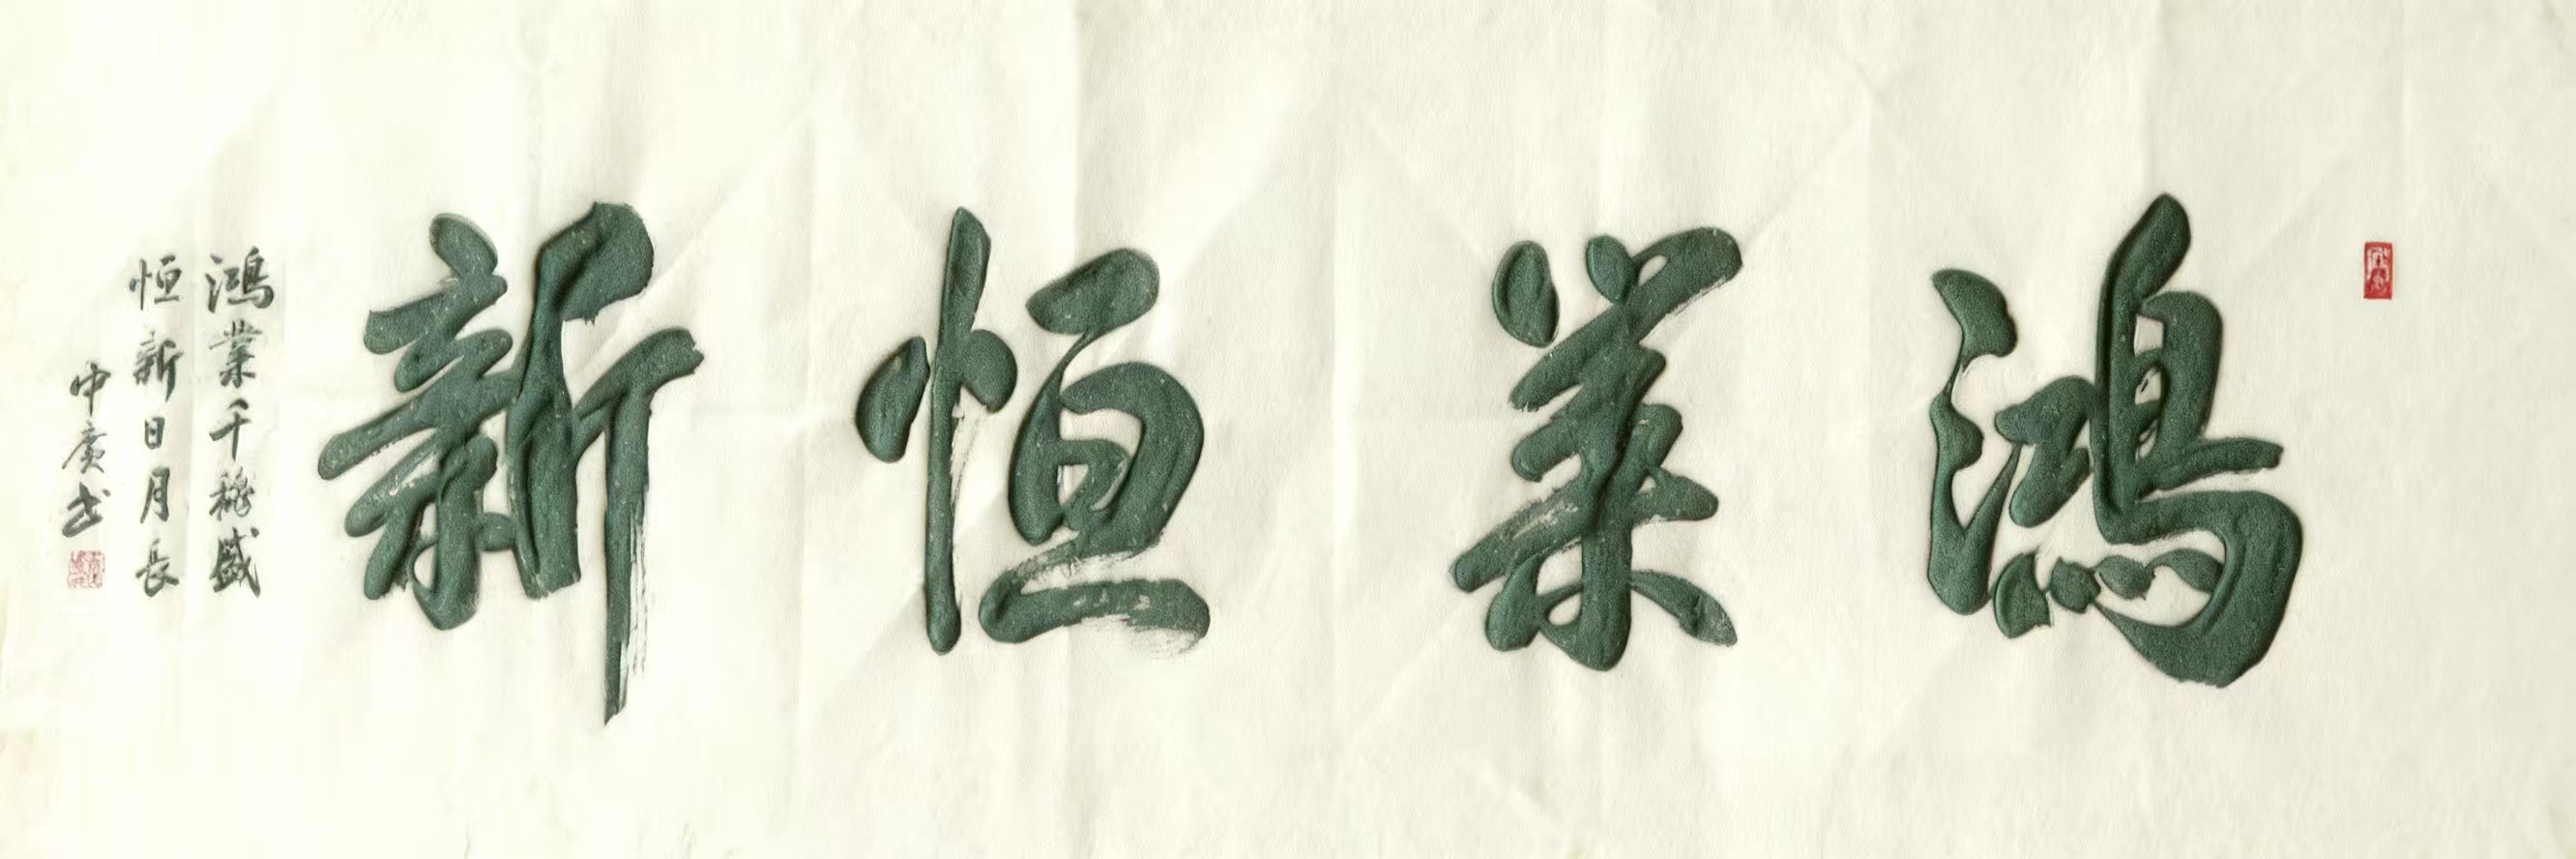 鴻業恒新
鴻業千穐盛
恒新日月長
中廣書